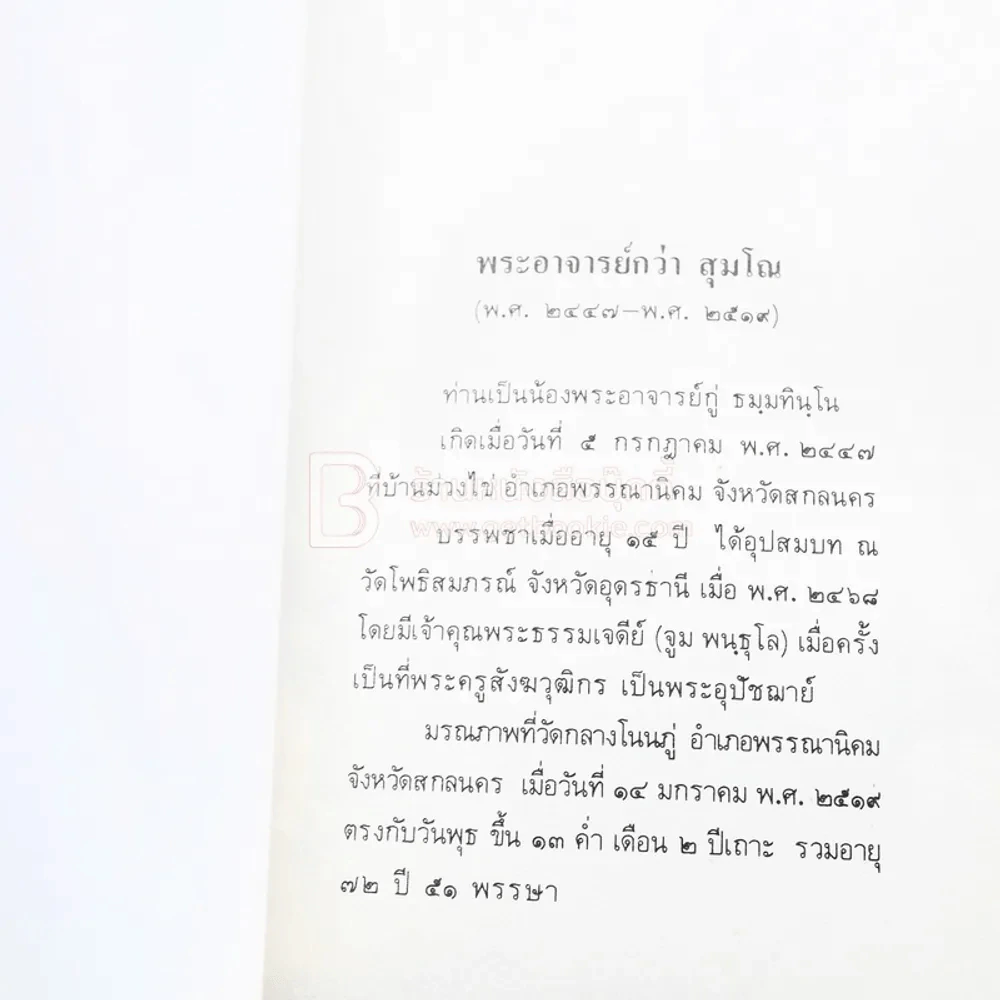 พระอาจารย์กว่า สุมโณ
(พ.ศ. ๒๔๔๗–พ.ศ. ๒๕๑๙)
ท่านเป็นน้องพระอาจารย์กู่ ธมฺมทินฺโน
เกิดเมื่อวันที่ ๕ กรกฎาคม พ.ศ. ๒๔๔๗
ที่บ้านม่วงไข่ อำเภอพรรณานิคม จังหวัดสกลนคร
บรรพชาเมื่ออายุ ๑๕ ปี ได้อุปสมบท ณ
วัดโพธิสมภรณ์ จังหวัดอุดรธานี เมื่อ พ.ศ. ๒๔๖๘
โดยมีเจ้าคุณพระธรรมเจดีย์ (จูม พนฺธุโล) เมื่อครั้ง
เป็นที่พระครูสังฆวุฒิกร เป็นพระอุปัชฌาย์
มรณภาพที่วัดกลางโนนภู่ อำเภอพรรณานิคม
จังหวัดสกลนคร เมื่อวันที่ ๑๔ มกราคม พ.ศ. ๒๕๑๙
ตรงกับวันพุธ ขึ้น ๑๓ ค่ำ เดือน ๒ ปีเถาะ รวมอายุ
๗๒ ปี ๕๑ พรรษา